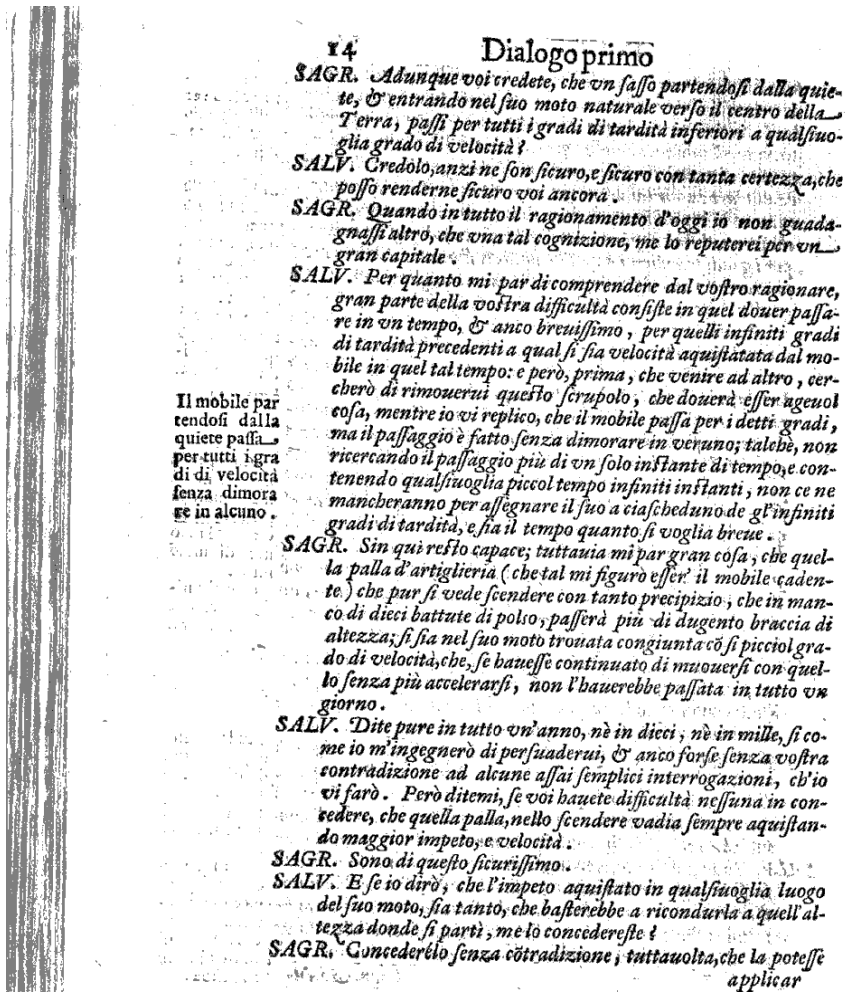 14 Dialogo primo
SAGR. Adunque voi credete, che vn ſaſſo partendoſi dalla quie-
te, & entrando nel ſuo moto naturale verſo il centro della
Terra, paſſi per tutti i gradi di tardità inferiori a qualſiuo-
glia grado di velocità?
SALV. Credolo, anzi ne ſon ſicuro, e ſicuro con tanta certezza, che
poſſo renderne ſicuro voi ancora.
SAGR. Quando in tutto il ragionamento d'oggi io non guada-
gnaſſi altro, che vna tal cognizione, me lo reputerei per vn
gran capitale.
SALV. Per quanto mi par di comprendere dal voſtro ragionare,
gran parte della voſtra difficultà conſiſte in quel douer paſſa-
re in vn tempo, & anco breuiſſimo, per quelli infiniti gradi
di tardità precedenti a qual ſi ſia velocità aquiſtatata dal mo-
bile in quel tal tempo: e però, prima, che venire ad altro, cer-
cherò di rimouerui queſto ſcrupolo, che douerà eſſer ageuol
coſa, mentre io vi replico, che il mobile paſſa per i detti gradi,
ma il paſſaggio è fatto ſenza dimorare in veruno; talchè, non
ricercando il paſſaggio più di vn ſolo inſtante di tempo, e con-
tenendo qualſiuoglia piccol tempo infiniti inſtanti, non ce ne
mancheranno per aſſegnare il ſuo a ciaſcheduno de gl'infiniti
gradi di tardità, e ſia il tempo quanto ſi voglia breue.
Il mobile par
tendoſi dalla
quiete paſſa
per tutti i gra
di di velocità
ſenza dimora
re in alcuno.
SAGR. Sin qui reſto capace; tuttauia mi par gran coſa, che quel-
la palla d'artiglieria (che tal mi figurò eſſer il mobile caden-
te) che pur ſi vede ſcendere con tanto precipizio, che in man-
co di dieci battute di polſo, paſſerà più di dugento braccia di
altezza; ſi ſia nel ſuo moto trouata congiunta cõ ſi picciol gra-
do di velocità, che, ſe haueſſe continuato di muouerſi con quel-
lo ſenza più accelerarſi, non l'hauerebbe paſſata in tutto vn
giorno.
SALV. Dite pure in tutto vn'anno, nè in dieci, nè in mille, ſi co-
me io m'ingegnerò di perſuaderui, & anco forſe ſenza voſtra
contradizione ad alcune aſſai ſemplici interrogazioni, ch'io
vi farò. Però ditemi, ſe voi hauete difficultà neſſuna in con-
cedere, che quella palla, nello ſcendere vadia ſempre aquiſtan-
do maggior impeto, e velocità.
SAGR. Sono di queſto ſicuriſſimo.
SALV. E ſe io dirò, che l'impeto aquiſtato in qualſiuoglia luogo
del ſuo moto, ſia tanto, che baſterebbe a ricondurla a quell'al-
tezza donde ſi partì, me lo concedereſte?
SAGR. Concederélo ſenza cõtradizione, tuttauolta, che la poteſſe
applicar